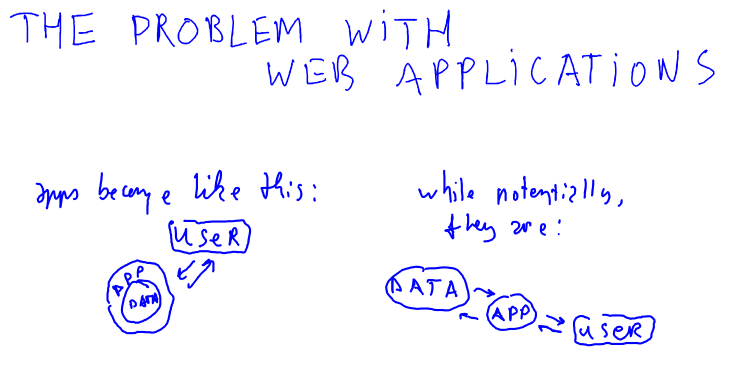 THE PROBLEM WITH
WEB APPLICATIONS
apps become like this:
USER
APP
DATA
while potentially,
they are:
DATA
APP
USER